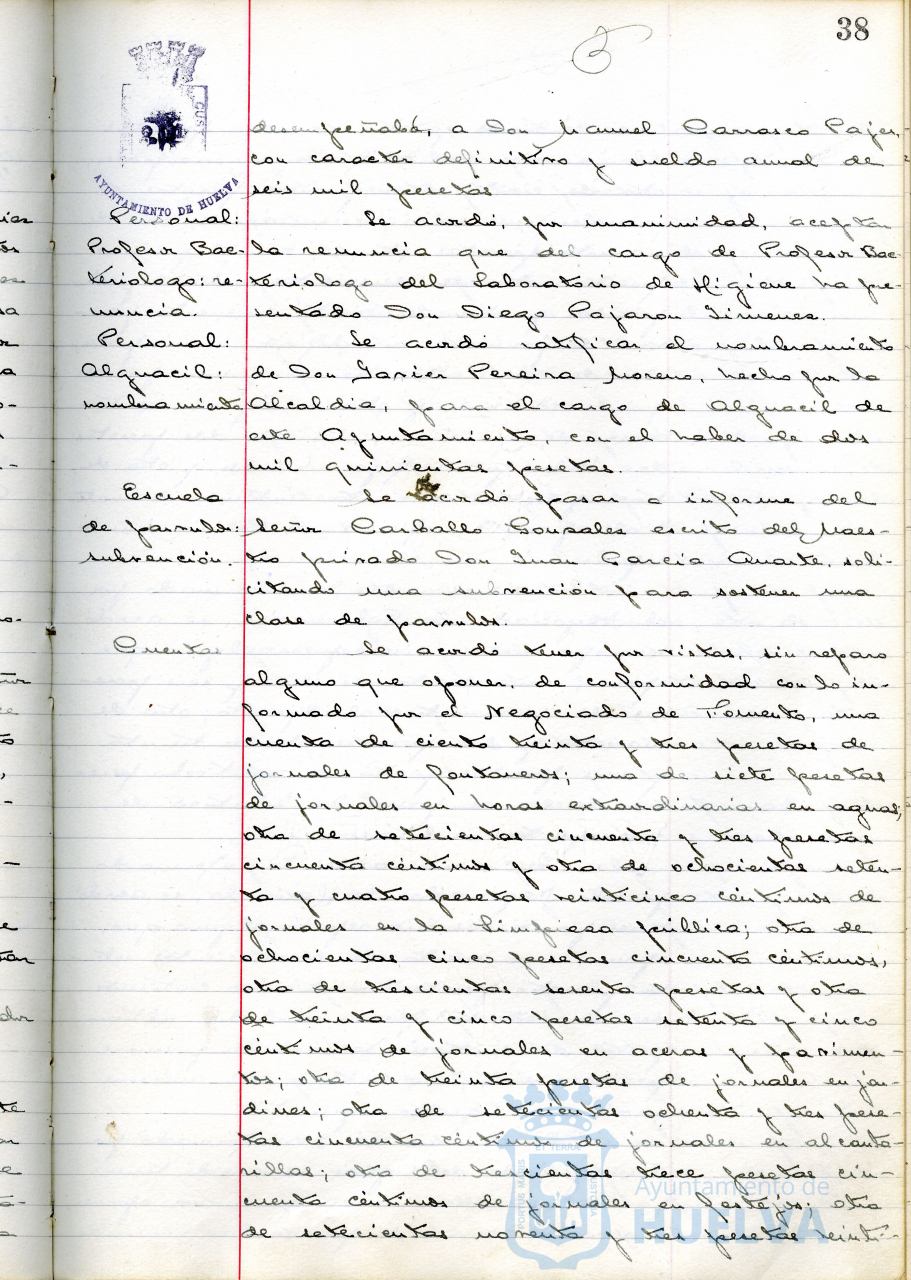 38
AYUNTAMIENTO DE HUELVA
desempeñaba, a Don Manuel Carrasco Pajes,
con caracter definitivo y sueldo anual de
seis mil pesetas
Personal:
Profesor Bac-
teriologo: re-
nuncia.
Se acordó, por unanimidad, aceptar
la renuncia que del cargo de Profesor Bac-
teriologo del Laboratorio de Higiene ha pre-
sentado Don Diego Pajaron Jimenez.
Personal:
Alguacil:
nombramiento
Se acordó ratificar el nombramiento
de Don Javier Pereira Moreno, hecho por la
Alcaldia, para el cargo de Alguacil de
este Ayuntamiento, con el haber de dos
mil quinientas pesetas.
Escuela
de parvulos:
subvención.
Se acordó pasar a informe del
Señor Carballo Gonzales escrito del Maes-
tro privado Don Juan García Anarte, soli-
citando una subvención para sostener una
clase de parvulos.
Cuentas
Se acordó tener por vistas, sin reparo
alguno que oponer, de conformidad con lo in-
formado por el Negociado de Fomento, una
cuenta de ciento treinta y tres pesetas de
jornales de fontaneros; una de siete pesetas
de jornales en horas extraordinarias en aguas;
otra de setecientas cincuenta y tres pesetas
cincuenta céntimos y otra de ochocientas seten-
ta y cuatro pesetas veinticinco céntimos de
jornales en la limpieza pública; otra de
ochocientas cinco pesetas cincuenta céntimos,
otra de trescientas sesenta pesetas y otra
de treinta y cinco pesetas setenta y cinco
céntimos de jornales en aceras y pavimen-
tos; otra de treinta pesetas de jornales en jar-
dines; otra de setecientas ochenta y tres pese-
tas cincuenta céntimos de jornales en alcanta-
rillas; otra de trescientas trece pesetas cin-
cuenta céntimos de jornales en festejos; otra
de setecientas noventa y tres pesetas veinti-
Ayuntamiento de
HUELVA